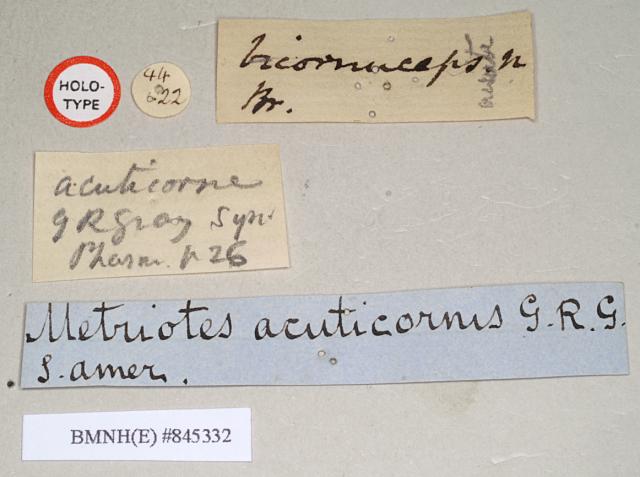 HOLO-
TYPE
44
22
bicornuceps n
Br.
acuticorne
G R Gray Syn.
Phasm. p 26
Metriotes acuticornis G.R.G.
S. amer.
BMNH(E) #845332